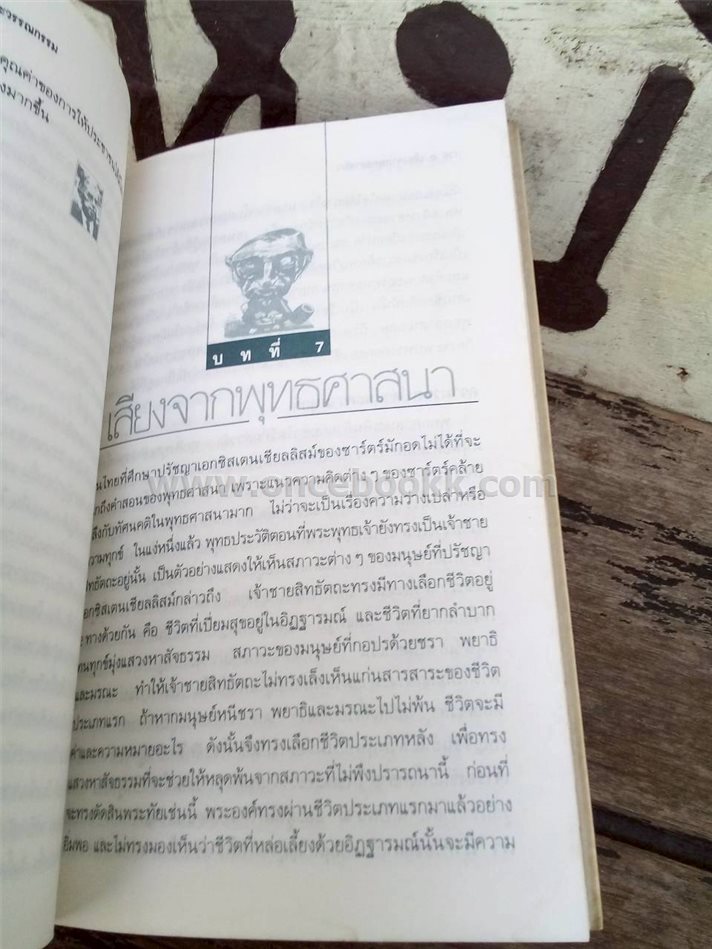 วรรณกรรม
คุณค่าของการให้
มากขึ้น
บทที่ 7
เสียงจากพุทธศาสนา
นไทยที่ศึกษาปรัชญาเอกซิสเตนเชียลลิสม์ของซาร์ตร์มักอดไม่ได้ที่จะ
กถึงคำสอนของพุทธศาสนา เพราะแนวความคิดต่าง ๆ ของซาร์ตร์คล้าย
ลึงกับทัศนคติในพุทธศาสนามาก ไม่ว่าจะเป็นเรื่องความว่างเปล่าหรือ
ความทุกข์ ในแง่หนึ่งแล้ว พุทธประวัติตอนที่พระพุทธเจ้ายังทรงเป็นเจ้าชาย
สิทธัตถะอยู่นั้น เป็นตัวอย่างแสดงให้เห็นสภาวะต่าง ๆ ของมนุษย์ที่ปรัชญา
อกซิสเตนเชียลลิสม์กล่าวถึง เจ้าชายสิทธัตถะทรงมีทางเลือกชีวิตอยู่
ทางด้วยกัน คือ ชีวิตที่เปี่ยมสุขอยู่ในอิฏฐารมณ์ และชีวิตที่ยากลำบาก
ทนทุกข์มุ่งแสวงหาสัจธรรม สภาวะของมนุษย์ที่กอปรด้วยชรา พยาธิ
และมรณะ ทำให้เจ้าชายสิทธัตถะไม่ทรงเล็งเห็นแก่นสารสาระของชีวิต
ประเภทแรก ถ้าหากมนุษย์หนีชรา พยาธิและมรณะไปไม่พ้น ชีวิตจะมี
ค่าและความหมายอะไร ดังนั้นจึงทรงเลือกชีวิตประเภทหลัง เพื่อทรง
แสวงหาสัจธรรมที่จะช่วยให้หลุดพ้นจากสภาวะที่ไม่พึงปรารถนานี้ ก่อนที่
จะทรงตัดสินพระทัยเช่นนี้ พระองค์ทรงผ่านชีวิตประเภทแรกมาแล้วอย่าง
อิ่มพอ และไม่ทรงมองเห็นว่าชีวิตที่หล่อเลี้ยงด้วยอิฏฐารมณ์นั้นจะมีความ
www.oncebookk.com